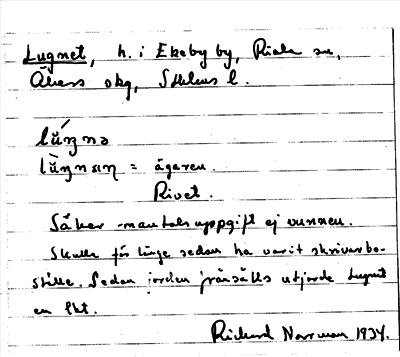 Lugnet, h. i Ekeby by, Riala sn,
Åkers skg, Sthlms l.
lúŋnə
lùŋnɛɪŋ = ägaren.
Rivet.
Säker mantalsuppgift ej vunnen.
Skulle för länge sedan ha varit skrivarbo-
ställe. Sedan jorden frånsålts utgjorde Lugnet
en lht.
Richard Norrman 1934.